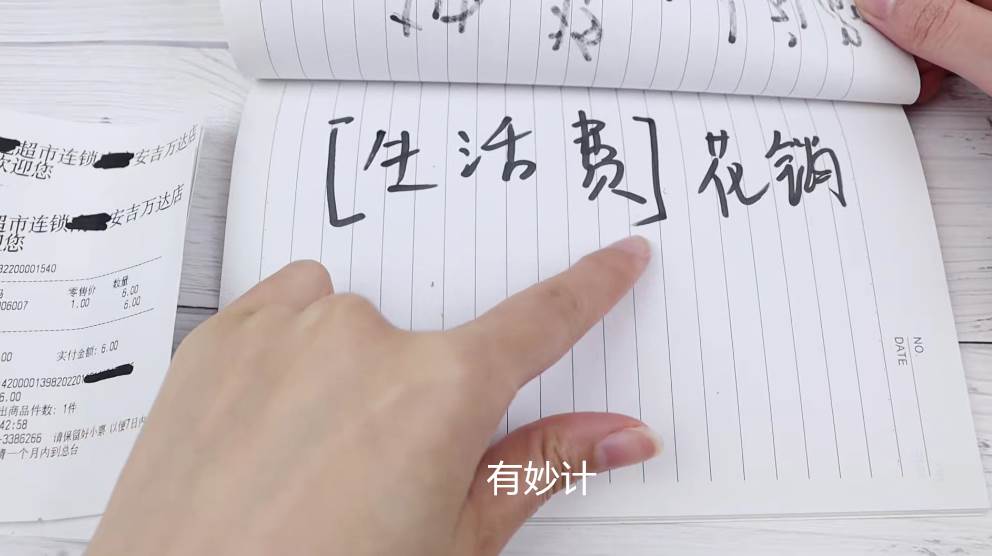 [生活费]花销
超市连锁 安吉万达店
欢迎您
超市连锁 安吉万达店
您
32200001540
零售价 数量
06007 1.00 6.00
6.00
.00 实付金额: 6.00
4200001398202201
6.00
出商品件数: 1件
42:58
-3386266 请保留好小票 以便7日内
一个月内到总台
NO.
DATE
有妙计